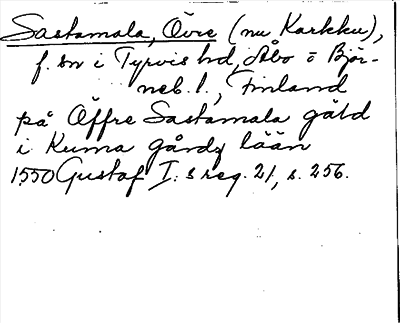 Sastamala, Övre (nu Karkku),
f. sn i Tyrvis hd, Åbo o Björ-
neb. l., Finland
på Öffre Sastamala gäld
i Kuma gårdz lään
1550 Gustaf I:s reg. 21, s. 256.